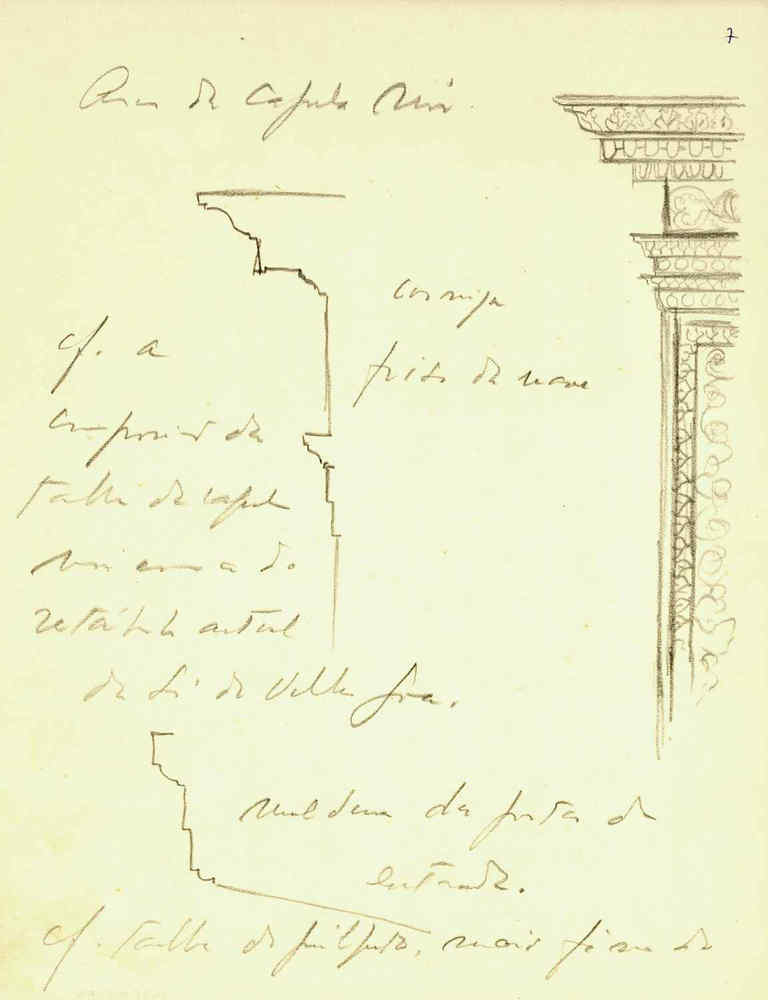 7
Arco da Capela Mór.
cornija
friso da nave
cf. a
composição da
talha da capela
mór com a do
retábulo actual
da Sé de Velha Goa.
moldura da porta de
entrada.
cf. talha do púlpito, mais fina do